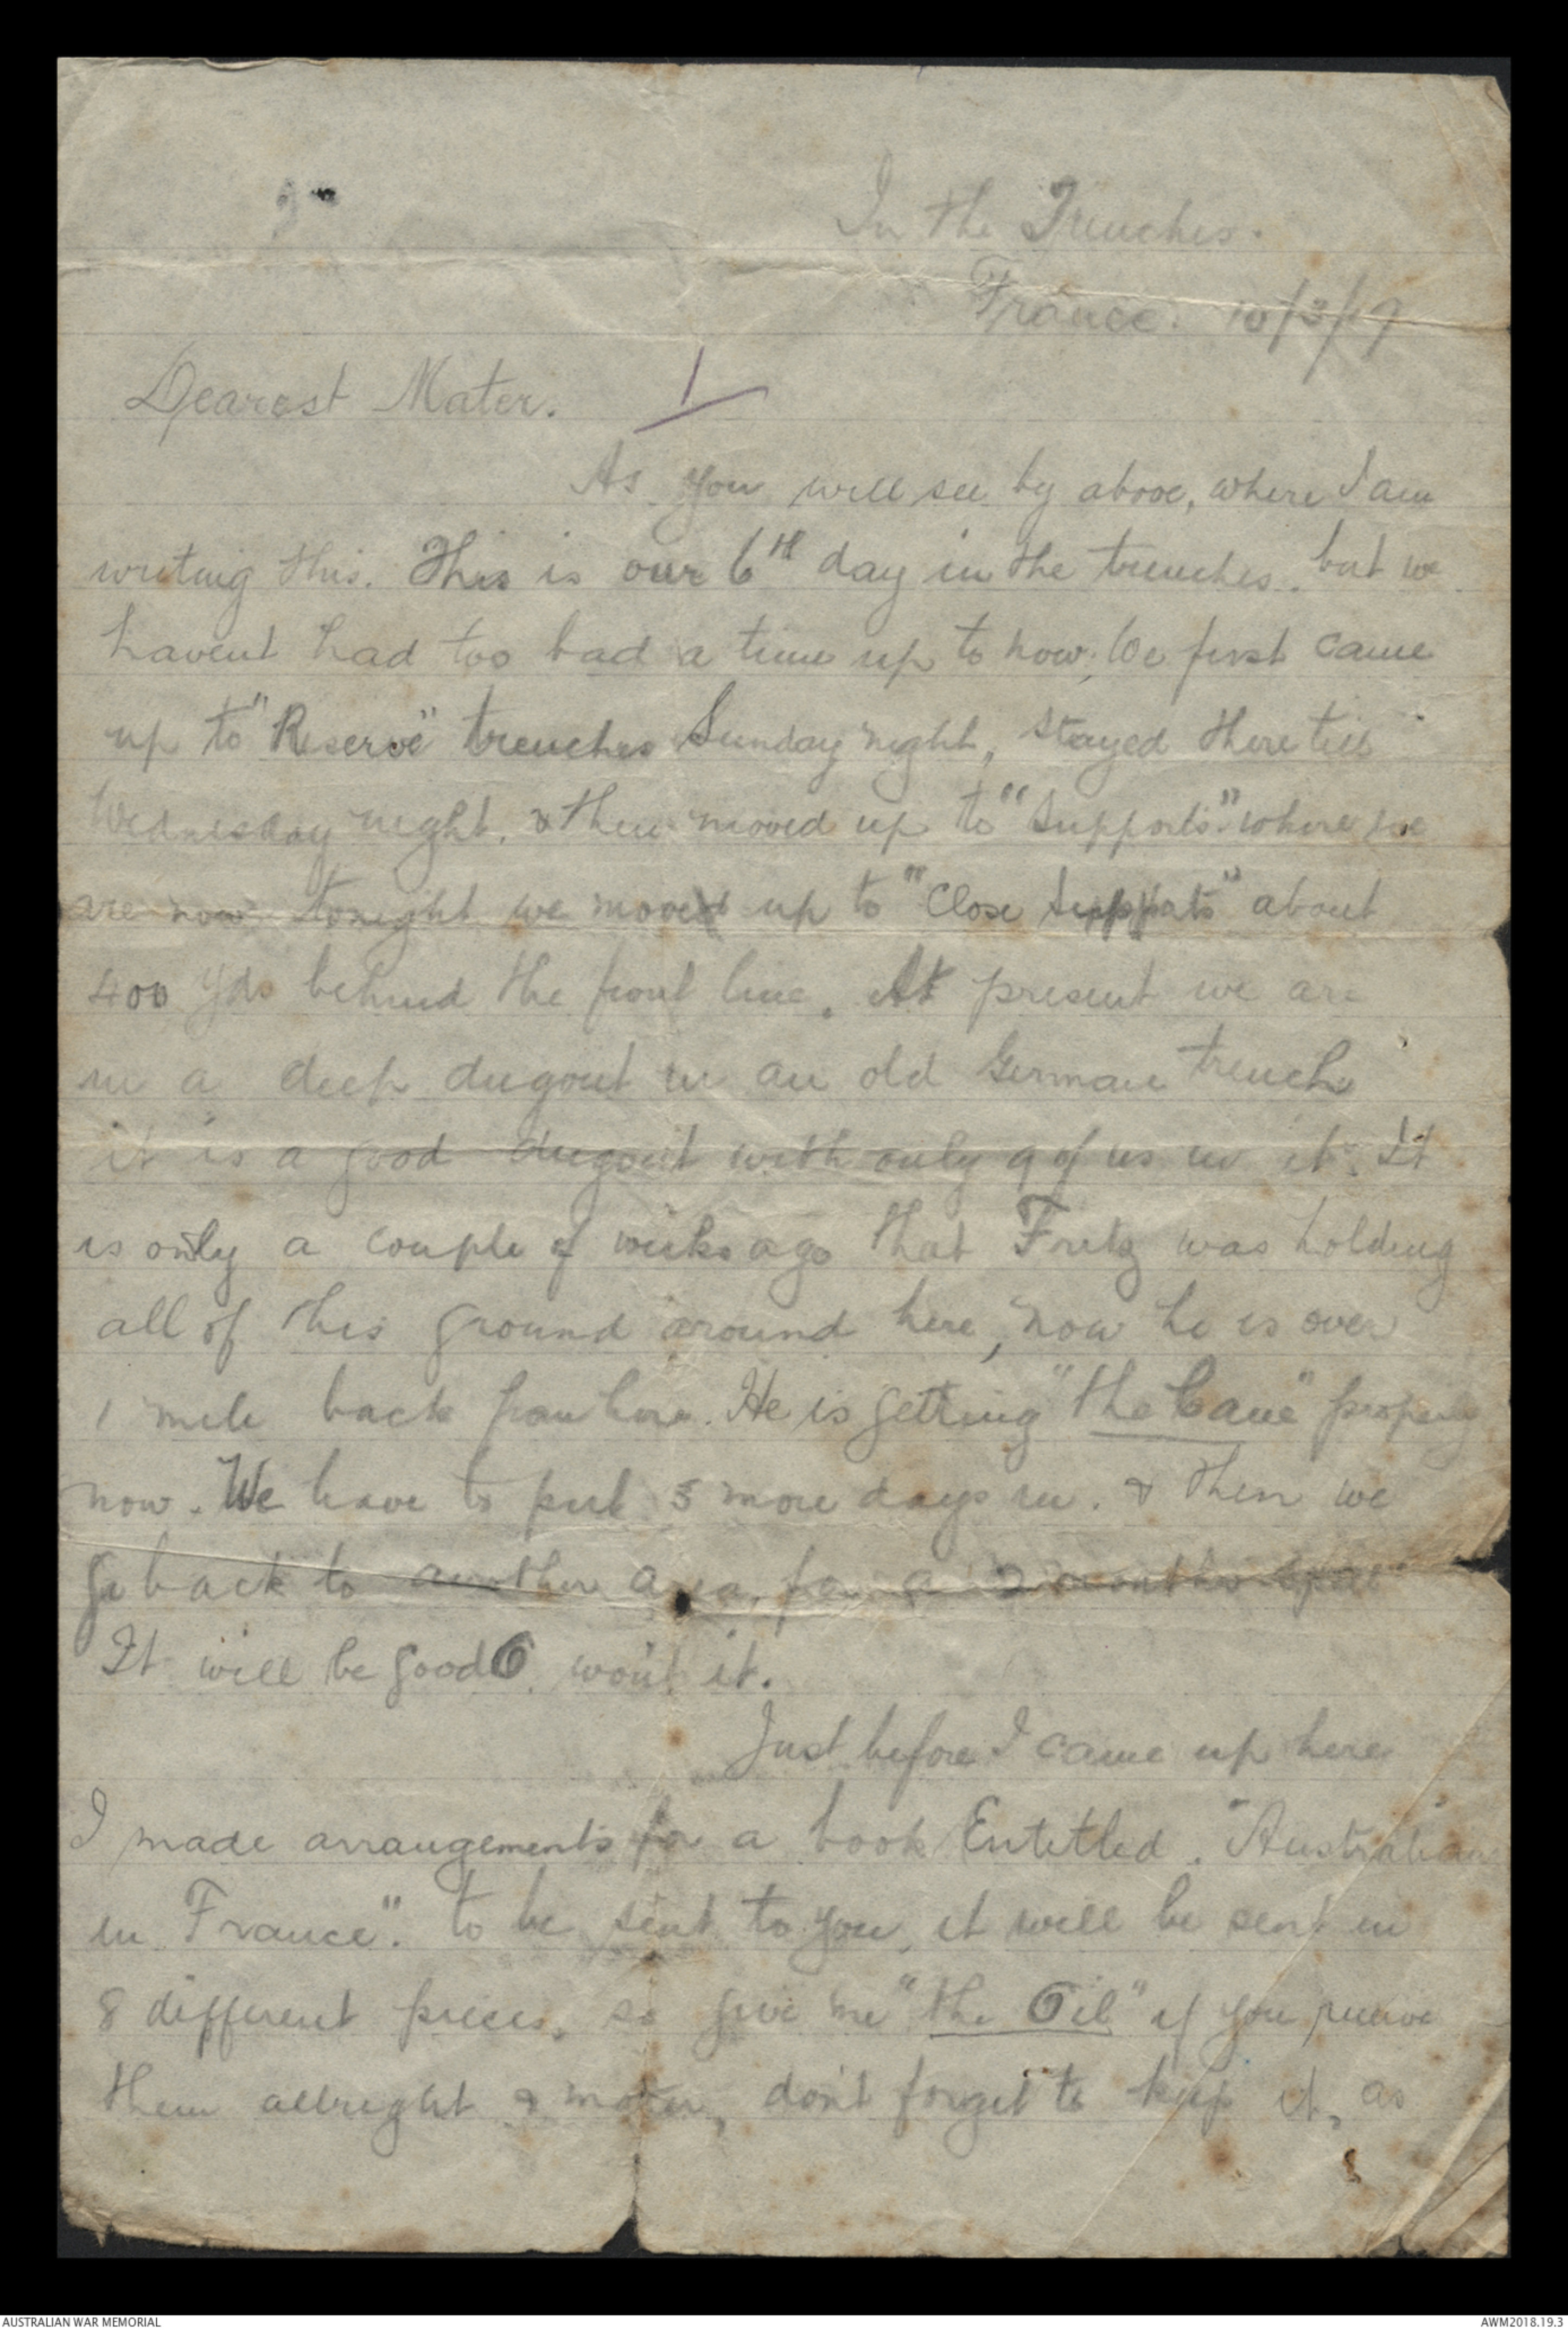 In the Trenches.
France. 10/3/17
Dearest Mater.
1
As you will see by above, where I am
writing this. This is our 6th day in the trenches. but we
havent had too bad a time up to now, We first came
up to "Reserve" trenches Sunday night, stayed there till
Wednesday night. & then moved up to "Supports" where we
are now tonight we move up to "Close Supports" about
400 yds behind the front line. At present we are
in a deep dugout in an old German trench
it is a good dugout with only 9 of us in it. It
is only a couple of weeks ago that Fritz was holding
all of this ground around here, now he is over
1 mile back from here. He is getting "the Cane" properly
now. We have to put 5 more days in. & then we
go back to another area, for a 2 months spell
It will be goodO. wont it.
Just before I came up here
I made arrangements for a book Entitled. "Australian
in France". to be sent to you, it will be sent in
8 different pieces, so give me "the Oil" if you receive
them allright & mater, don't forget to keep it, as
AUSTRALIAN WAR MEMORIAL
AWM2018.19.3